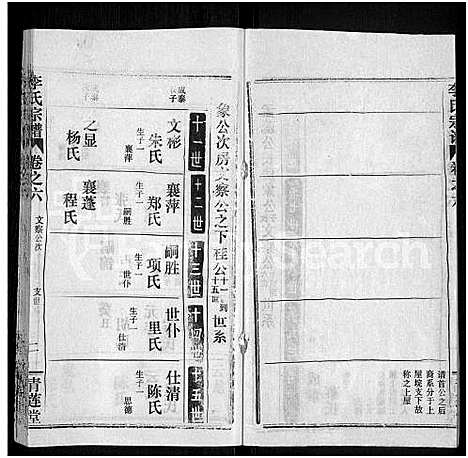 李氏宗譜
请首公之后
裔系分于上
屋垸支下故
称之上屋
象公次房文察公之下程公十一到十五區世系
十一世
十二世
十三世
十四世
十五世
成泰
子
文彬
朱氏
生子一
襄萍
之显
杨氏
襄萍
郑氏
生子一
嗣胜
襄蓬
程氏
嗣胜
项氏
生子一
世仆
世仆
里氏
生子一
仕清
仕清
陈氏
生子一
思德
李氏宗譜
卷之六
文察公次
支世
二
青莲堂